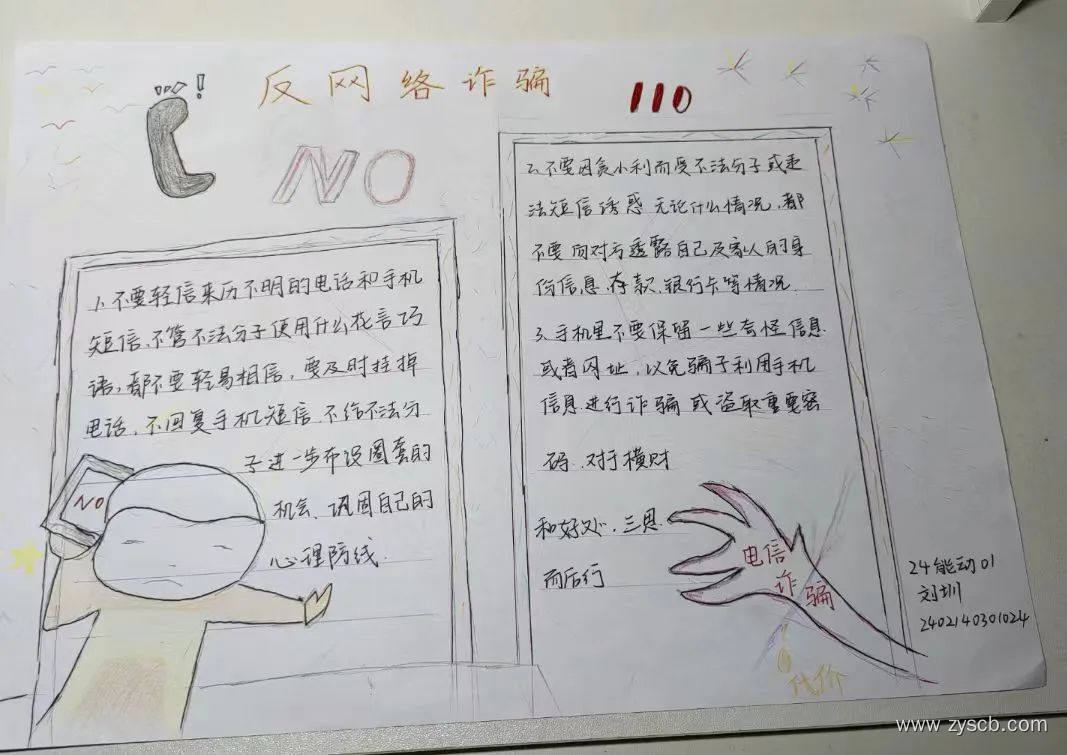 反网络诈骗
110
!
NO
1、不要轻信来历不明的电话和手机
短信、不管不法分子使用什么花言巧
语，都不要轻易相信，要及时挂掉
电话，不回复手机短信、不给不法分
子进一步布设圈套的
机会、巩固自己的
心理防线
NO
2、不要因贪小利而受不法分子或违
法短信诱惑 无论什么情况，都
不要向对方透露自己及家人的身
份信息、存款、银行卡等情况、
3、手机里不要保留一些奇怪信息
或者网址，以免骗子利用手机
信息进行诈骗或盗取重要密
码、对于横财
和好处、三思
而后行
电信
诈骗
代价
24能动01
刘圳
2402140301024
www.zyscb.com